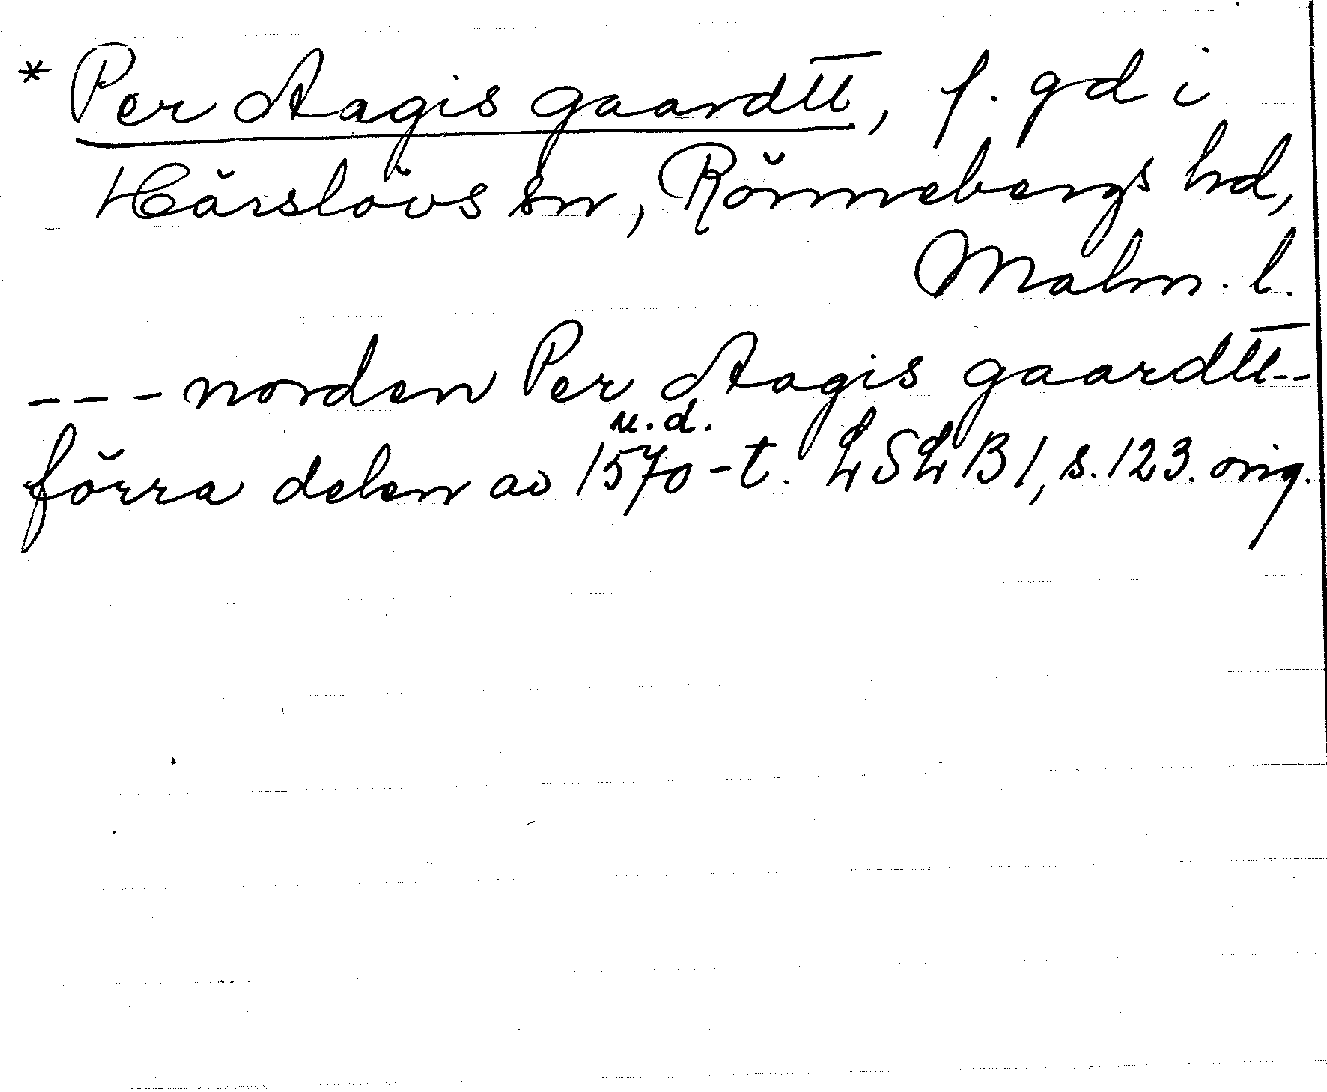 * Per Aagis gaardtt, f. gd i
Härslövs sn, Rönnebergs hd,
Malm. l.
--- norden Per Aagis gaardtt--
u.d.
förra delen av 1570-t. LSLB 1, s. 123. orig.